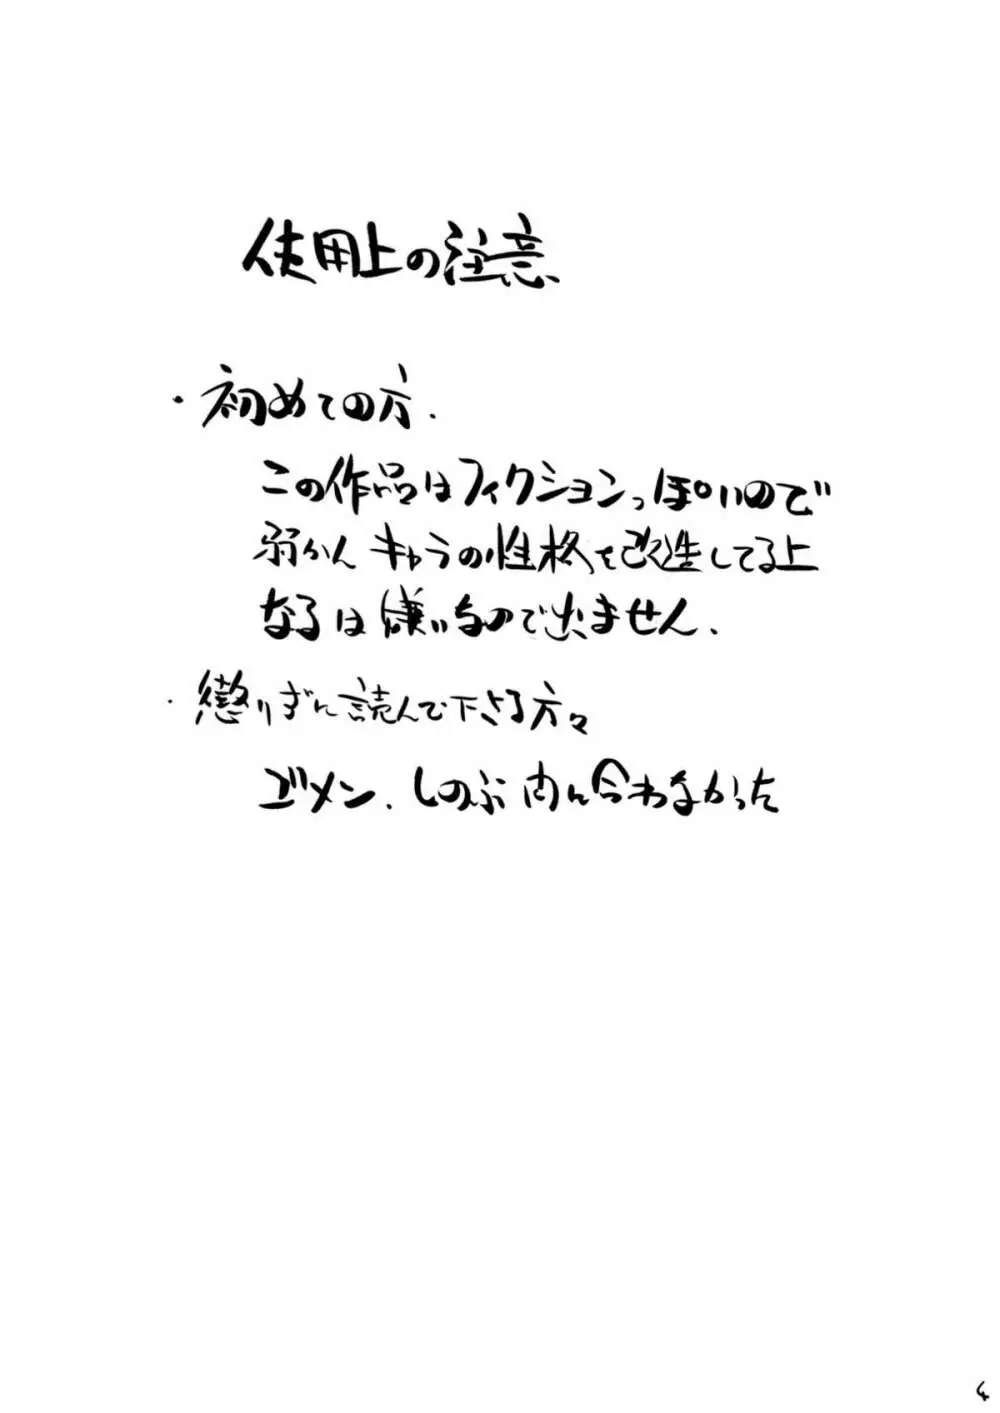 使用上の注意
・初めての方.
この作品はフィクションっぽいので
弱かん キャラの性格を改造してる上
なるは嫌いなので出ません.
・懲りずに読んで下さる方々
ゴメン.しのぶ 内に合わなかった